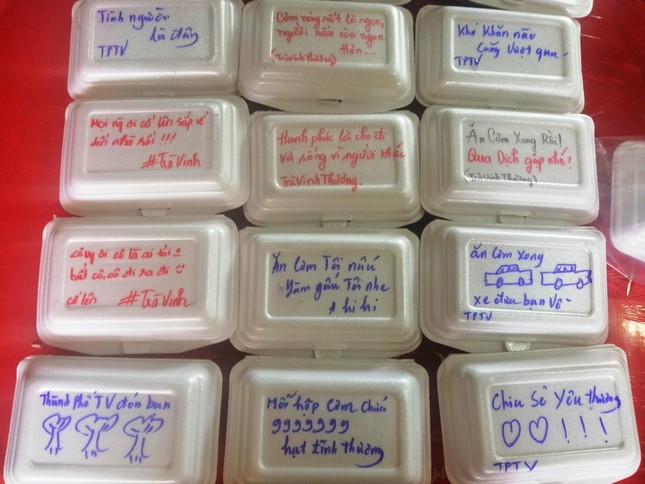 Tình người
là đây
TPTV
Cơm này rất là ngon,
người nấu còn ngon
hơn..
(Trà Vinh Thương)
Khó Khăn nào
cũng vượt qua
TPTV
Mọi ng ơi cố lên sắp về
tới nhà rồi !!!
#Trà Vinh
Hạnh phúc là cho đi
và sống vì người khác
Trà Vinh Thương.
Ăn Cơm Xong Rồi!
Qua Dịch gặp nhé!
(Trà Vinh Thương)
cố lên #Trà Vinh
Ăn Cơm Tôi nấu
Yêm gấu Tôi nhe
A hi hi
ăn cơm xong
xe đưa bạn về
TPTV
Thành Phố TV đón bạn
Mỗi hộp cơm chứa
9999999
hạt tình thương
Chia Sẻ Yêu thương
! ! !
TPTV